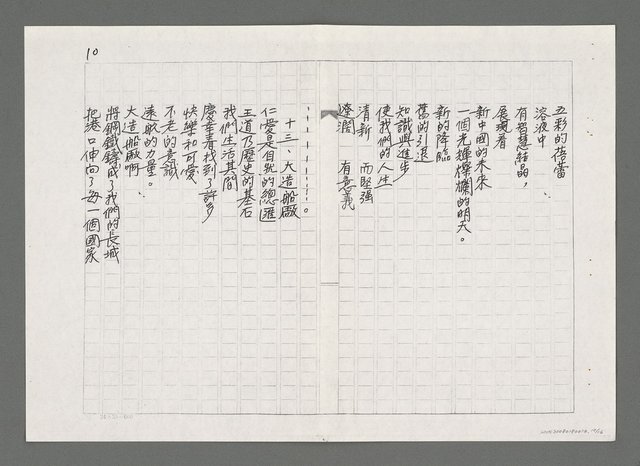 五彩的蓓蕾
溶液中
有智慧結晶，
展現着
新中國的未來
一個光輝燦爛的明天。
新的降臨
舊的引退
知識與進步
使我們的人生
清新 而堅強
遼濶 有意義
-----------。
十三、大造船廠
仁愛是自然的總匯
王道乃歷史的基石
我們生活其間
慶幸着找到了許多
快樂和可愛
不老的意識
遠航的力量。
大造船廠啊
將鋼鐵鑄成了我們的長城
把港口伸向了每一個國家
10